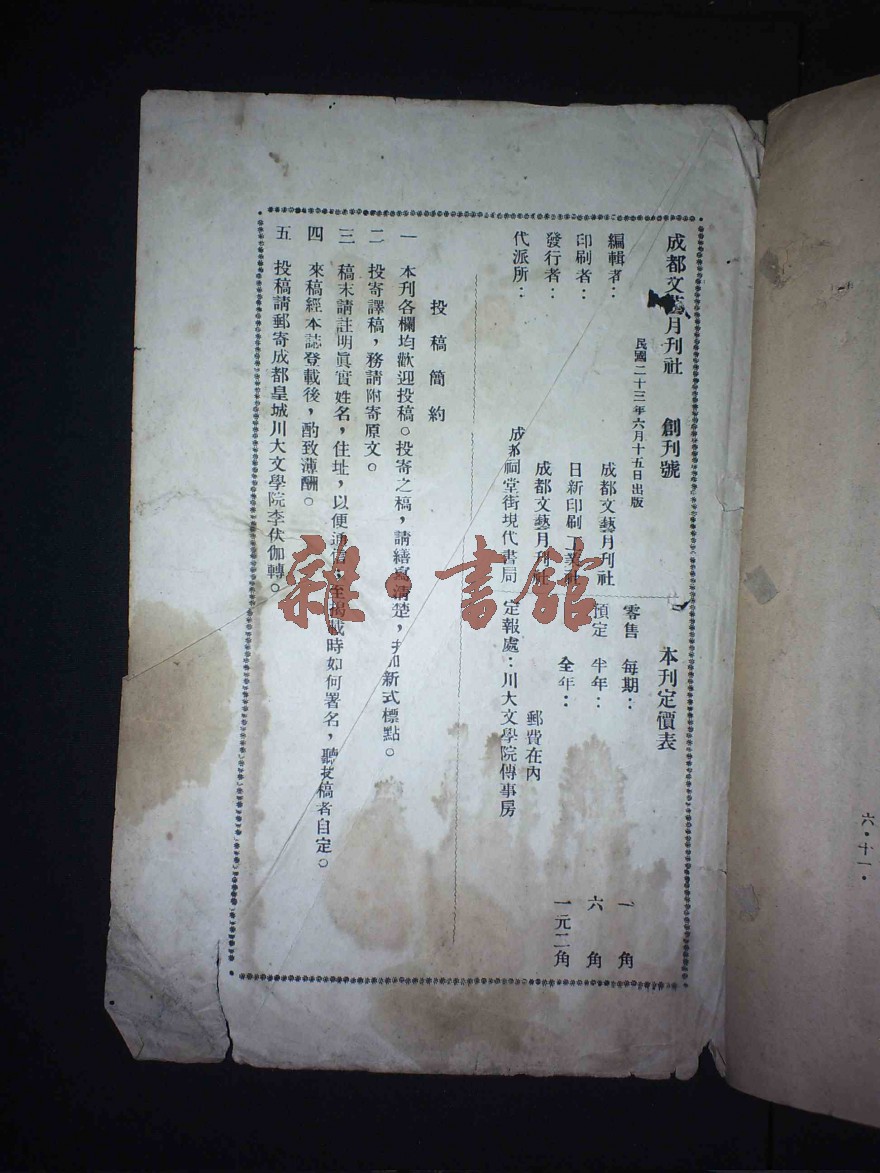 成都文藝月刊社 創刊號
民國二十三年六月十五日出版
編輯者： 成都文藝月刊社
印刷者： 日新印刷工業社
發行者： 成都文藝月刊社
代派所： 成都祠堂街現代書局
本刊定價表
零售 每期： 一角
預定 半年： 六角
全年： 一元二角
郵費在內
定報處：川大文學院傳事房
投稿簡約
一 本刊各欄均歡迎投稿。投寄之稿，請繕寫清楚，并加新式標點。
二 投寄譯稿，務請附寄原文。
三 稿末請註明眞實姓名，住址，以便通信，至揭載時如何署名，聽投稿者自定。
四 來稿經本誌登載後，酌致薄酬。
五 投稿請郵寄成都皇城川大文學院李伏伽轉。
六・十一・
雜・書館